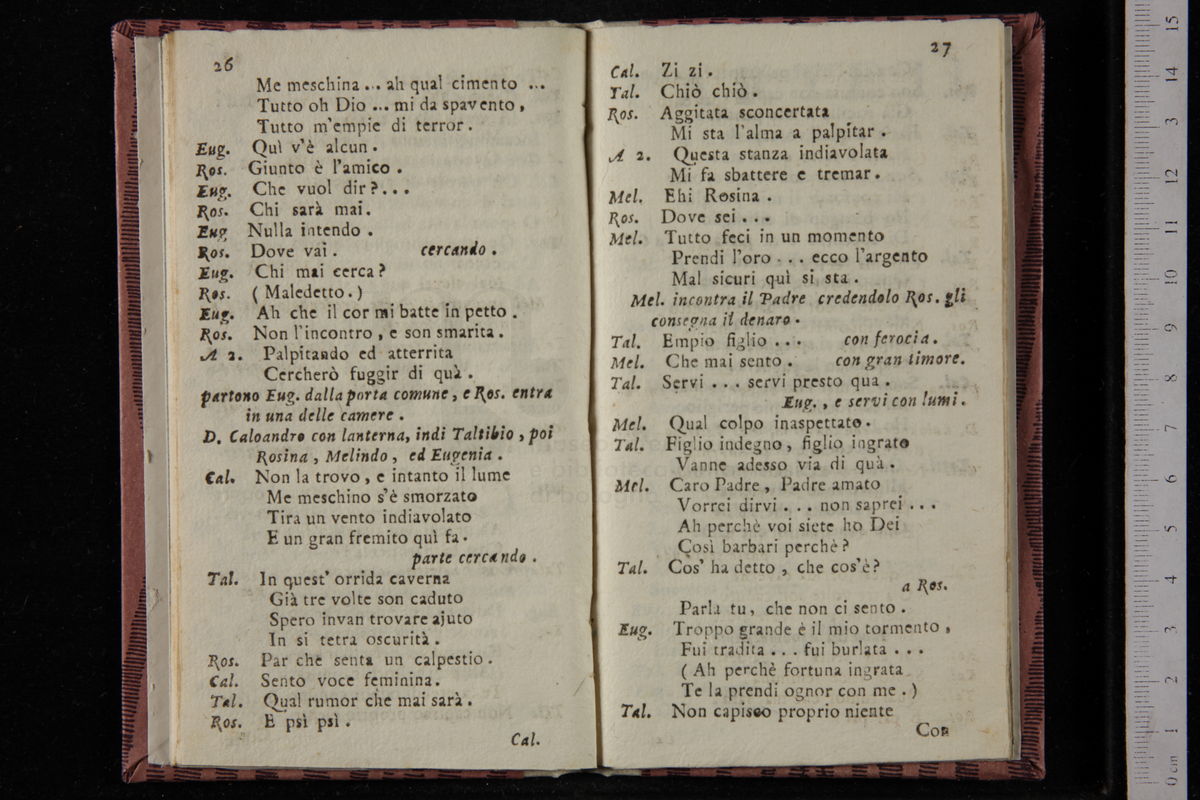 26
Me meschina ... ah qual cimento ...
Tutto oh Dio ... mi da spavento,
Tutto m'empie di terror.
Eug. Quì v'è alcun.
Ros. Giunto è l'amico.
Eug. Che vuol dir?...
Ros. Chi sarà mai.
Eug Nulla intendo.
Ros. Dove vai. cercando.
Eug. Chi mai cerca?
Ros. (Maledetto.)
Eug. Ah che il cor mi batte in petto.
Ros. Non l'incontro, e son smarita.
A 2. Palpitando ed atterrita
Cercherò fuggir di quà.
partono Eug. dalla porta comune, e Ros. entra
in una delle camere.
D. Caloandro con lanterna, indi Taltibio, poi
Rosina, Melindo, ed Eugenia.
Cal. Non la trovo, e intanto il lume
Me meschino s'è smorzato
Tira un vento indiavolato
E un gran fremito quì fa.
parte cercando.
Tal. In quest' orrida caverna
Già tre volte son caduto
Spero invan trovare ajuto
In si tetra oscurità.
Ros. Par che senta un calpestio.
Cal. Sento voce feminina.
Tal. Qual rumor che mai sarà.
Ros. E psì psì.
Cal.
27
Cal. Zi zi.
Tal. Chiò chiò.
Ros. Aggitata sconcertata
Mi sta l'alma a palpitar.
A 2. Questa stanza indiavolata
Mi fa sbattere e tremar.
Mel. Ehi Rosina.
Ros. Dove sei...
Mel. Tutto feci in un momento
Prendi l'oro ... ecco l'argento
Mal sicuri quì si sta.
Mel. incontra il Padre credendolo Ros. gli
consegna il denaro.
Tal. Empio figlio... con ferocia.
Mel. Che mai sento. con gran timore.
Tal. Servi... servi presto qua.
Eug., e servi con lumi.
Mel. Qual colpo inaspettato.
Tal. Figlio indegno, figlio ingrato
Vanne adesso via di quà.
Mel. Caro Padre, Padre amato
Vorrei dirvi... non saprei...
Ah perchè voi siete ho Dei
Così barbari perchè?
Tal. Cos' ha detto, che cos'è?
a Ros.
Parla tu, che non ci sento.
Eug. Troppo grande è il mio tormento,
Fui tradita... fui burlata...
(Ah perchè fortuna ingrata
Te la prendi ognor con me.)
Tal. Non capisco proprio niente
Con